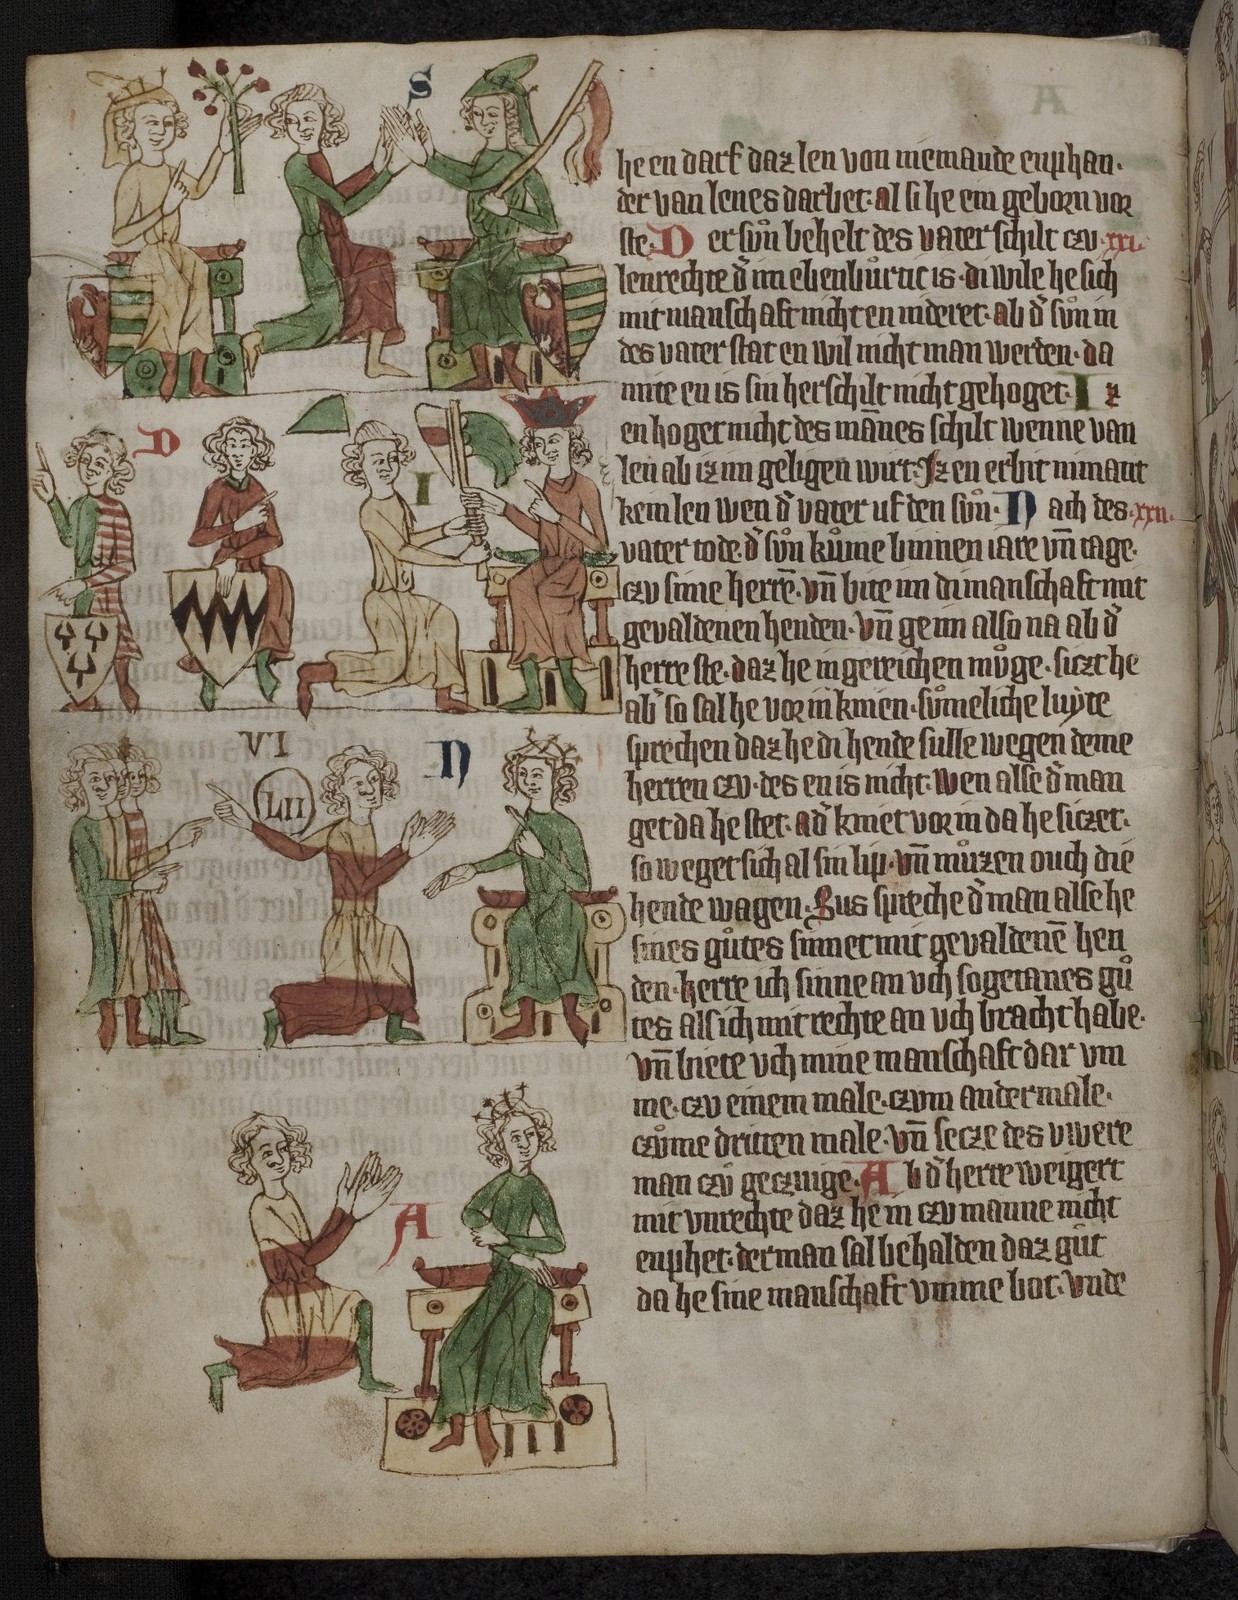 S
D
I
VI
LII
N
A
A
he en darf daz len von niemande enphan·
der van lenes darbet· al si he em geborn vor
ste· D er sůn behelt des vater schilt czu ·xxi·
lenrechte d᷑ im ebenbůrtic is· di wile he sich
mit manschaft nicht en nideret· ab d᷑ sůn in
des vater stat en wil nicht man werden· da
mite en is sin herschilt nicht gehoget· I z
en hoget nicht des ma̅nes schilt wenne van
len ab iz im geligen wirt· Iz en erbit nimant
kein len wen d᷑ vater uf den sůn· N ach des ·xxii·
vater tode· d᷑ sůn kůme binnen iare vn̅ tage·
czu sime herre̅· vn̅ bite im di manschaft mit
gevaldenen henden· vn̅ ge im also na ab d᷑
herre ste· daz he in gereichen můge· siczt he
ab᷑ so sal he vor in knien· sůmeliche luyte
sprechen daz he di hende sulle wegen deme
herren czu· des en is nicht· wen alse d᷑ man
get da he stet· ad᷑ kniet vor in da he siczet·
so weget sich al sin lip· vn̅ můzen ouch die
hende wagen· Sus spreche d᷑ man alse he
sines gůtes sinnet mit gevaldene̅ hen
den· herre ich sinne an vch sogetanes gů
tes als ich mit rechte an vch bracht habe·
vn̅ biete vch mine manschaft dar vm
me· czu einem male· czum andermale·
czůme dritten male· vn̅ secze des vwere
man czů geczuige· A b d᷑ herre weigert
mit vnrechte daz he in czu manne nicht
enphet· der man sal behalden daz gůt
da he sine manschaft vmme bot· vnde